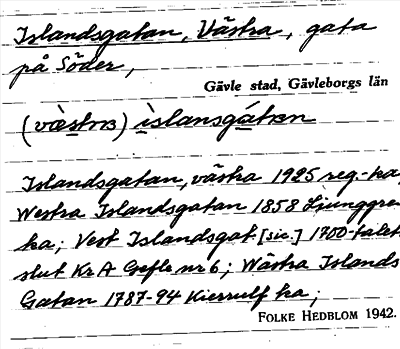 Islandsgatan, Västra, gata
på Söder,
Gävle stad, Gävleborgs län
(vä̀stra) ìslansgátan
Islandsgatan, västra 1925 reg.-ka,
Westra Islandsgatan 1858 Ljunggre
ka; Vest Islandsgat [sic.] 1700-talet
slut Kr A Gefle nr 6; Wästra Islands
Gatan 1787-94 Kierrulf ka;
FOLKE HEDBLOM 1942.